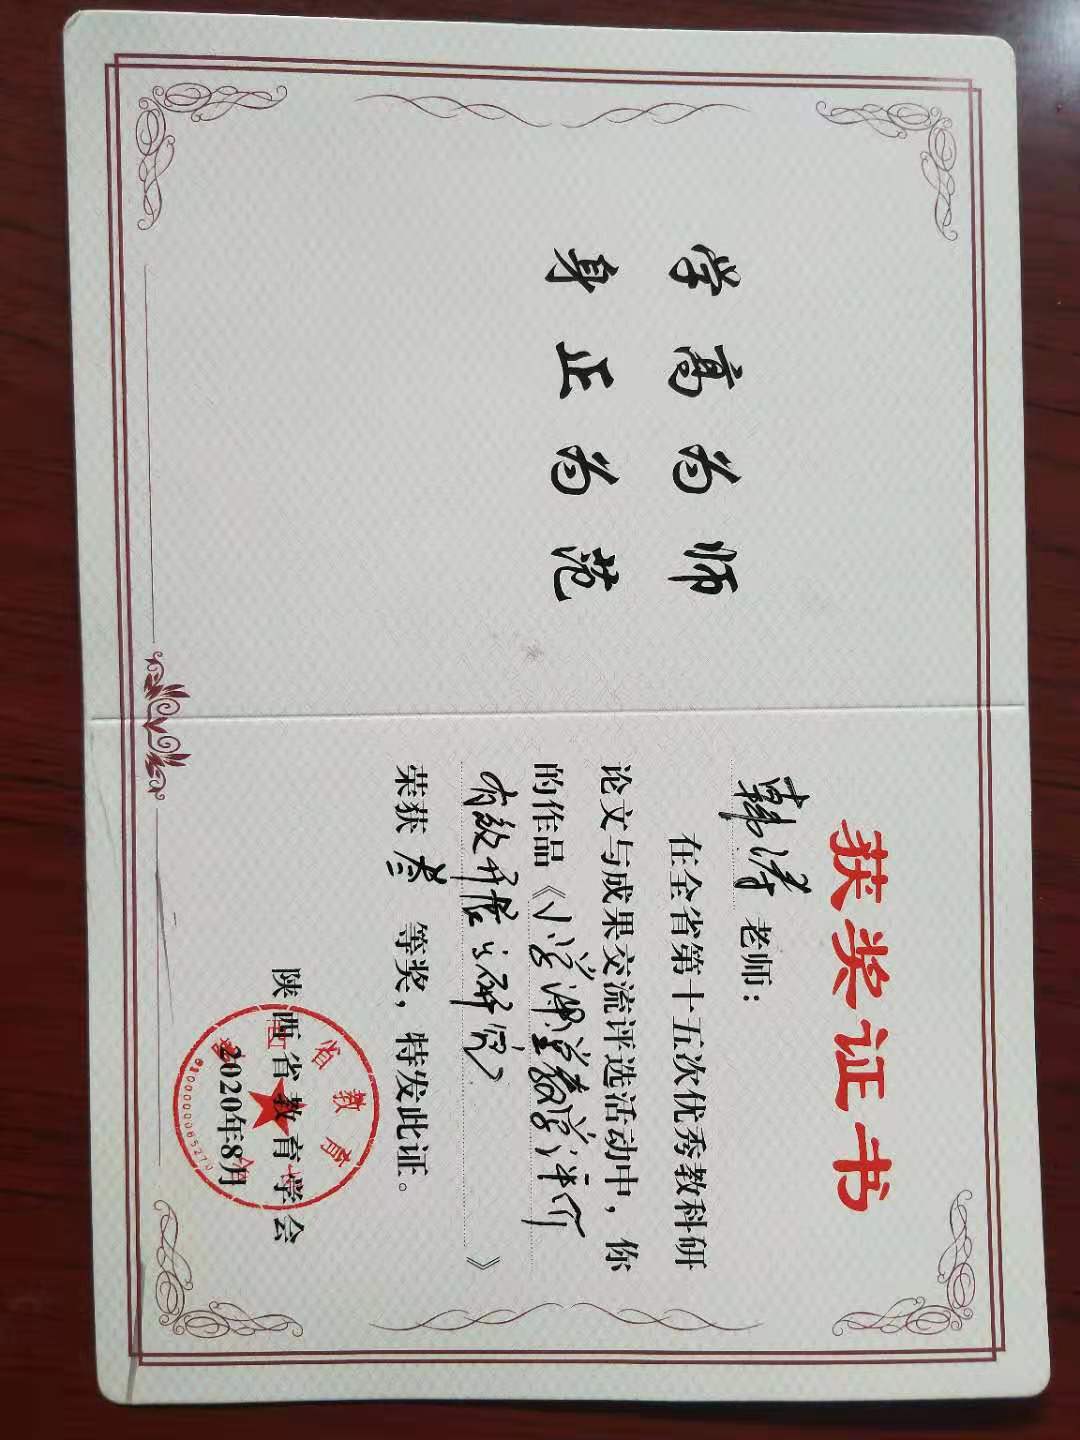 学高为师
身正为范
获奖证书
韩涛 老师：
在全省第十五次优秀教科研
论文与成果交流评选活动中，你
的作品《小学课堂教学评价
有效开展的研究》
荣获 叁 等奖，特发此证。
陕西省教育学会
2020年8月